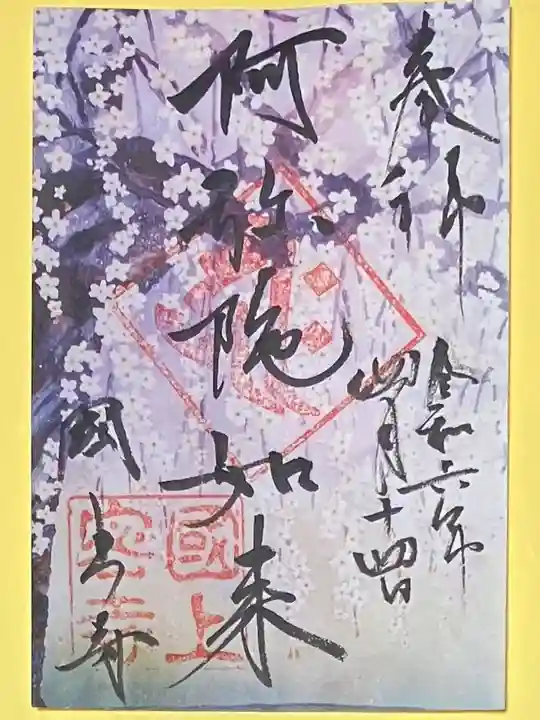 奉拝
令和六年
四月十四日
阿弥陀如来
国上寺
國上